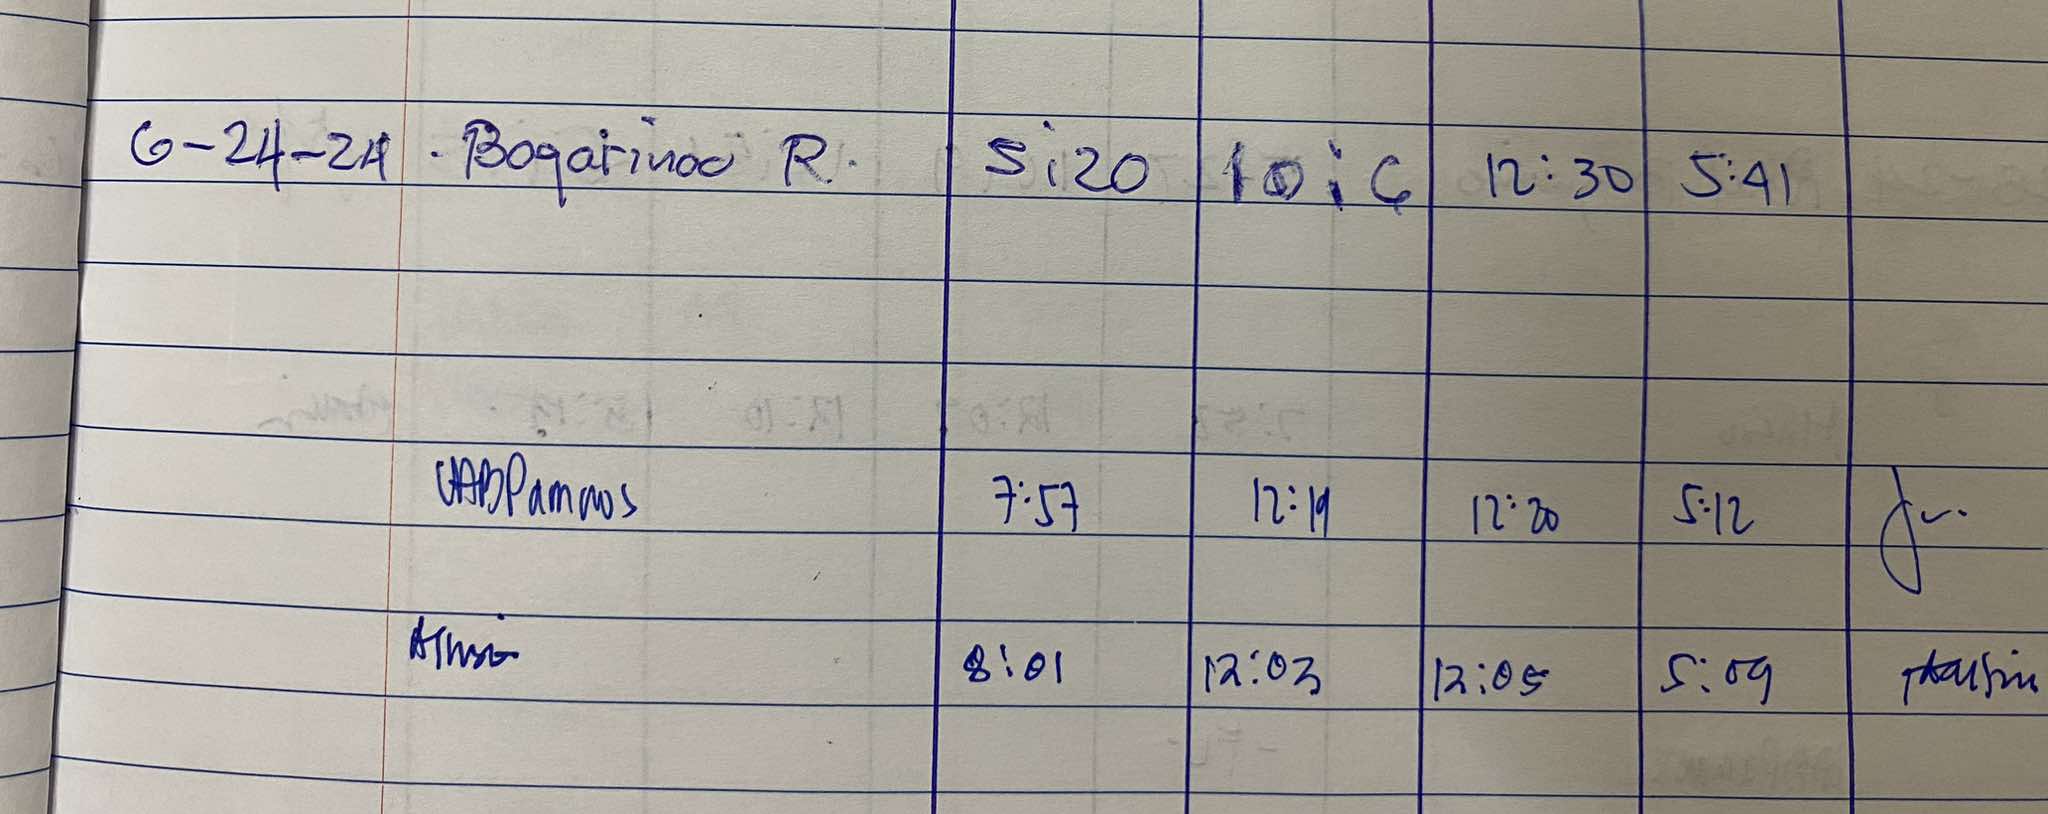 6-24-24 . Bogarinao R. 5:20 10:C 12:30 5:41
7:57 12:19 12:20 5:12
8:01 12:03 12:05 5:09